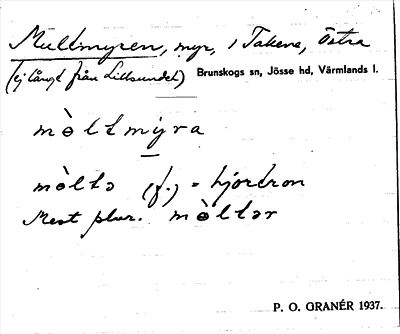 Multmyren, myr, i Takene, Östra
(ej långt från Lillsundet) Brunskogs sn, Jösse hd, Värmlands l.
mòltmýra
mòltə (f.) = hjortron
Mest plur. mòltər
P. O. GRANÉR 1937.